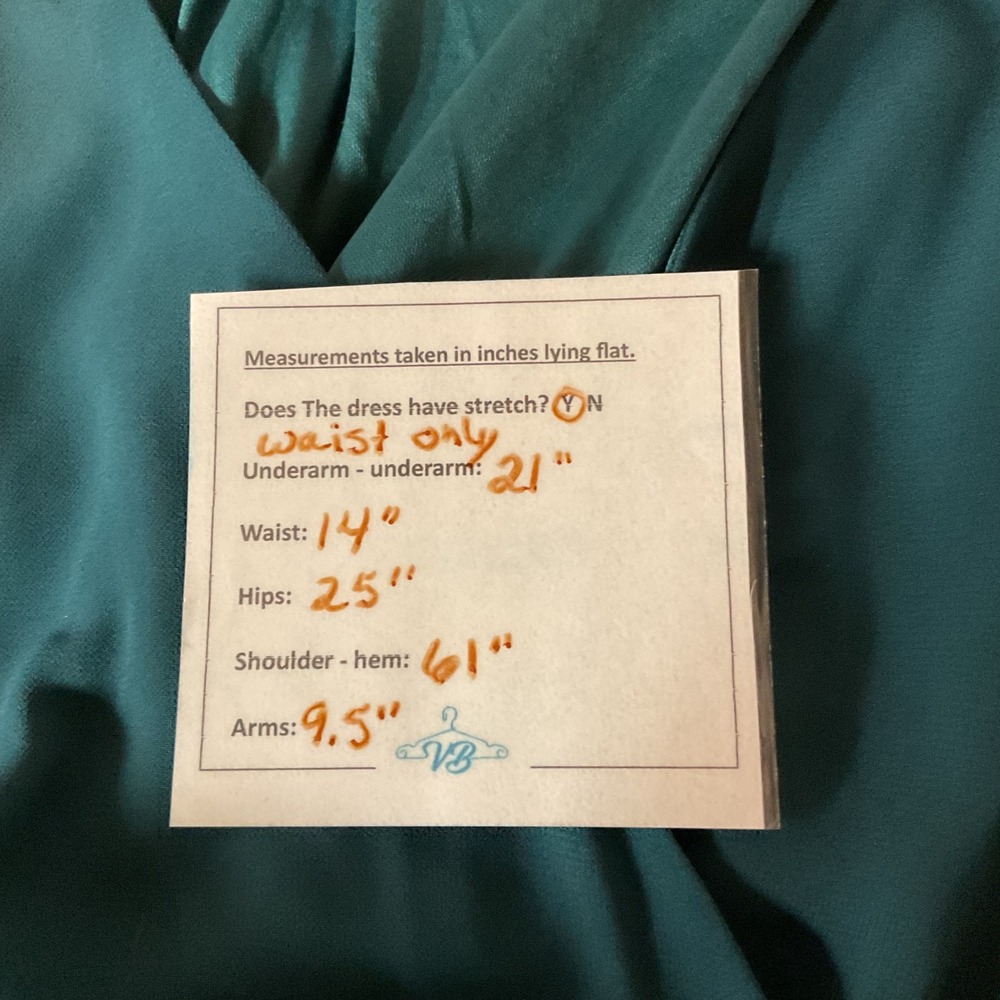 Measurements taken in inches lying flat.
Does The dress have stretch? Y N
waist only
Underarm - underarm: 21"
Waist: 14"
Hips: 25"
Shoulder - hem: 61"
Arms: 9.5"
VB